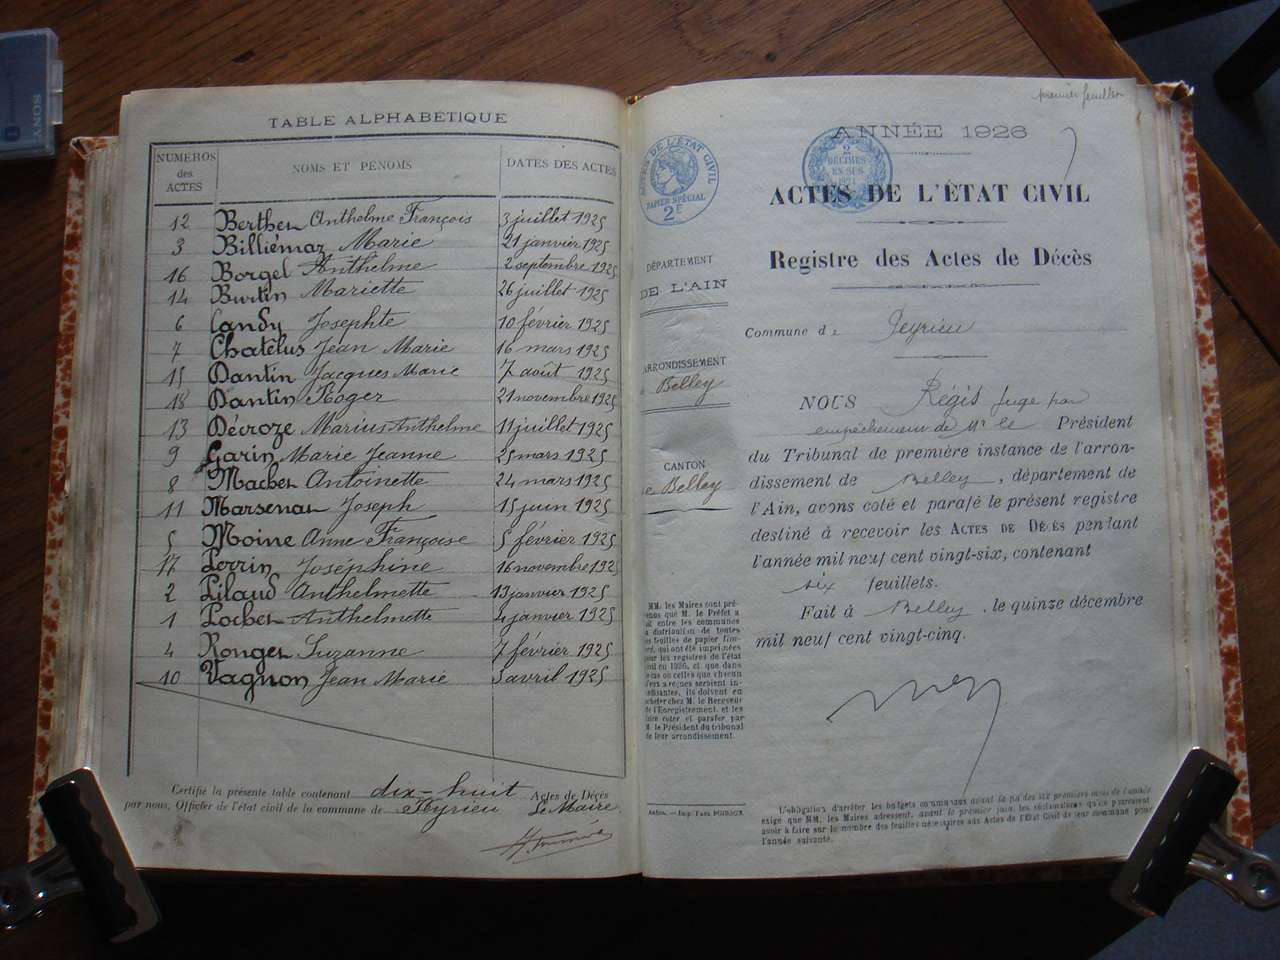 SONY
TABLE ALPHABÉTIQUE
NUMÉROS des ACTES NOMS ET PÉNOMS DATES DES ACTES
12 Berthet Anthelme François 3 juillet 1925
3 Billiémaz Marie 21 janvier 1925
16 Borgel Anthelme 2 septembre 1925
14 Burtin Mariette 26 juillet 1925
6 Candy Josephte 10 février 1925
7 Chatelus Jean Marie 16 mars 1925
15 Dantin Jacques Marie 7 août 1925
18 Dantin Roger 21 novembre 1925
13 Décroze Marius Anthelme 11 juillet 1925
9 Garin Marie Jeanne 25 mars 1925
8 Machet Antoinette 24 mars 1925
11 Joseph 15 juin 1925
5 Moine Anne Françoise 5 février 1925
17 Perrin Joséphine 16 novembre 1925
2 Pilaud Anthelmette 13 janvier 1925
1 Pochet Anthelmette 4 janvier 1925
4 Ronger Suzanne 7 février 1925
10 Vagnon Jean Marie 5 avril 1925
Certifié la présente table contenant dix-huit Actes de Décès
par nous, Officier de l'état civil de la commune de Peyrieu Le Maire
premier feuillet
ANNÉE 1926
2 DÉCIMES EN SUS
ACTES DE L'ÉTAT CIVIL
DE L'ÉTAT CIVIL
PAPIER SPÉCIAL
2F
Registre des Actes de Décès
DÉPARTEMENT
DE L'AIN
Commune de Peyrieu
ARRONDISSEMENT
Belley
NOUS Régis Juge par
empêchement de Mr le Président
du Tribunal de première instance de l'arron-
dissement de Belley, département de
l'Ain, avons coté et parafé le présent registre
destiné à recevoir les ACTES DE DÉCÈS pendant
l'année mil neuf cent vingt-six, contenant
six feuillets.
Fait à Belley, le quinze décembre
mil neuf cent vingt-cinq.
CANTON
Belley
MM. les Maires sont pré-
venus que M. le Préfet a
fait entre les communes
la distribution de toutes
les feuilles de papier
qui ont été imprimées
pour les registres de l'état
civil en 1926, et que dans
le cas où celles que chacun
d'eux a reçues seraient in-
suffisantes, ils doivent en
acheter chez M. le Receveur
de l'Enregistrement, et les
faire coter et parafer par
M. le Président du tribunal
de leur arrondissement.
L'obligation d'arrêter les budgets communaux avant la fin des six premiers mois de l'année
exige que MM. les Maires adressent, avant le premier juin, les réclamations qu'ils pourraient
avoir à faire sur le nombre des feuilles nécessaires aux Actes de l'État Civil de leur commune pour
l'année suivante.